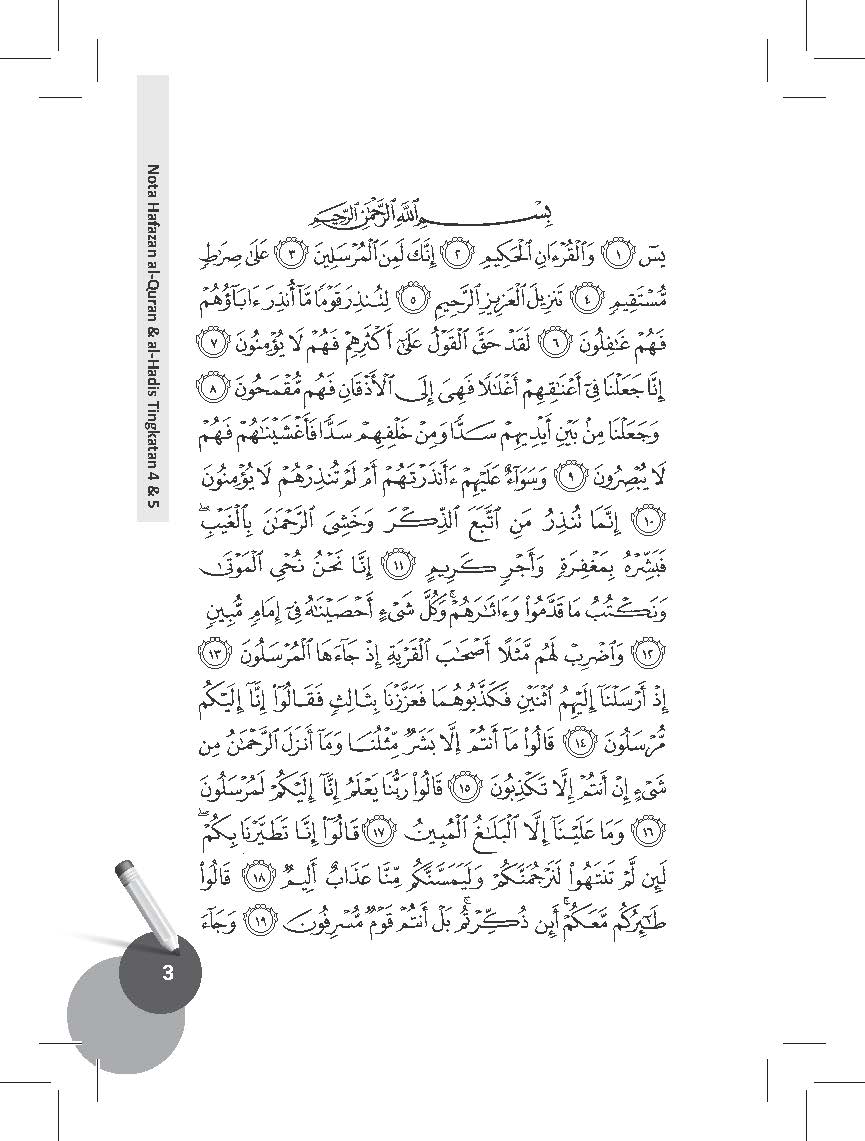 Nota Hafazan al-Quran & al-Hadis Tingkatan 4 & 5
بِسْمِ ٱللَّهِ ٱلرَّحْمَٰنِ ٱلرَّحِيمِ
يسٓ ١ وَٱلْقُرْءَانِ ٱلْحَكِيمِ ٢ إِنَّكَ لَمِنَ ٱلْمُرْسَلِينَ ٣ عَلَىٰ صِرَٰطٍ
مُّسْتَقِيمٍ ٤ تَنزِيلَ ٱلْعَزِيزِ ٱلرَّحِيمِ ٥ لِتُنذِرَ قَوْمًا مَّآ أُنذِرَ ءَابَآؤُهُمْ
فَهُمْ غَٰفِلُونَ ٦ لَقَدْ حَقَّ ٱلْقَوْلُ عَلَىٰٓ أَكْثَرِهِمْ فَهُمْ لَا يُؤْمِنُونَ ٧
إِنَّا جَعَلْنَا فِىٓ أَعْنَٰقِهِمْ أَغْلَٰلًا فَهِىَ إِلَى ٱلْأَذْقَانِ فَهُم مُّقْمَحُونَ ٨
وَجَعَلْنَا مِنۢ بَيْنِ أَيْدِيهِمْ سَدًّا وَمِنْ خَلْفِهِمْ سَدًّا فَأَغْشَيْنَٰهُمْ فَهُمْ
لَا يُبْصِرُونَ ٩ وَسَوَآءٌ عَلَيْهِمْ ءَأَنذَرْتَهُمْ أَمْ لَمْ تُنذِرْهُمْ لَا يُؤْمِنُونَ
١٠ إِنَّمَا تُنذِرُ مَنِ ٱتَّبَعَ ٱلذِّكْرَ وَخَشِىَ ٱلرَّحْمَٰنَ بِٱلْغَيْبِ ۖ
فَبَشِّرْهُ بِمَغْفِرَةٍ وَأَجْرٍ كَرِيمٍ ١١ إِنَّا نَحْنُ نُحْىِ ٱلْمَوْتَىٰ
وَنَكْتُبُ مَا قَدَّمُوا۟ وَءَاثَٰرَهُمْ ۚ وَكُلَّ شَىْءٍ أَحْصَيْنَٰهُ فِىٓ إِمَامٍ مُّبِينٍ
١٢ وَٱضْرِبْ لَهُم مَّثَلًا أَصْحَٰبَ ٱلْقَرْيَةِ إِذْ جَآءَهَا ٱلْمُرْسَلُونَ ١٣
إِذْ أَرْسَلْنَآ إِلَيْهِمُ ٱثْنَيْنِ فَكَذَّبُوهُمَا فَعَزَّزْنَا بِثَالِثٍ فَقَالُوٓا۟ إِنَّآ إِلَيْكُم
مُّرْسَلُونَ ١٤ قَالُوا۟ مَآ أَنتُمْ إِلَّا بَشَرٌ مِّثْلُنَا وَمَآ أَنزَلَ ٱلرَّحْمَٰنُ مِن
شَىْءٍ إِنْ أَنتُمْ إِلَّا تَكْذِبُونَ ١٥ قَالُوا۟ رَبُّنَا يَعْلَمُ إِنَّآ إِلَيْكُمْ لَمُرْسَلُونَ
١٦ وَمَا عَلَيْنَآ إِلَّا ٱلْبَلَٰغُ ٱلْمُبِينُ ١٧ قَالُوٓا۟ إِنَّا تَطَيَّرْنَا بِكُمْ ۖ
لَئِن لَّمْ تَنتَهُوا۟ لَنَرْجُمَنَّكُمْ وَلَيَمَسَّنَّكُم مِّنَّا عَذَابٌ أَلِيمٌ ١٨ قَالُوا۟
طَٰٓئِرُكُم مَّعَكُمْ ۚ أَئِن ذُكِّرْتُم ۚ بَلْ أَنتُمْ قَوْمٌ مُّسْرِفُونَ ١٩ وَجَآءَ
3